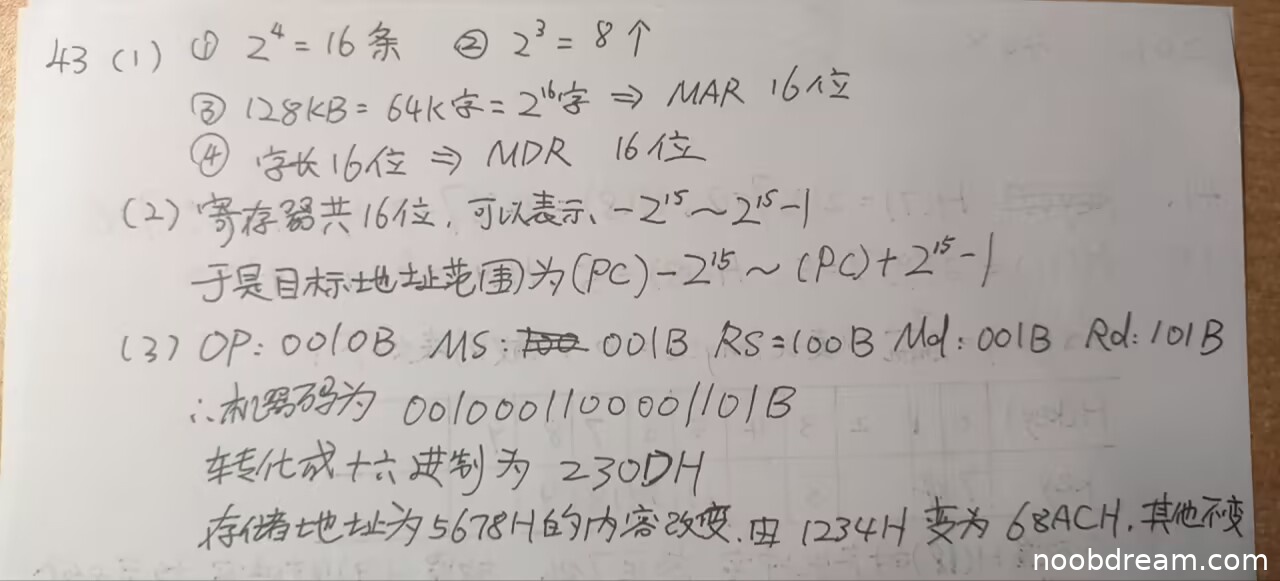 43 (1) ① 2⁴ = 16 条 ② 2³ = 8 个
③ 128KB = 64K字 = 2¹⁶字 ⇒ MAR 16位
④ 字长16位 ⇒ MDR 16位
(2) 寄存器共16位, 可以表示 -2¹⁵ ~ 2¹⁵-1
于是目标地址范围为(PC) - 2¹⁵ ~ (PC) + 2¹⁵ - 1
(3) OP: 0010B MS: 001B RS = 100B Md: 001B Rd: 101B
∴机器码为 0010001100001101B
转化成十六进制为 230DH
存储地址为5678H的内容改变. 由 1234H 变为 68ACH, 其他不变
noobdream.com